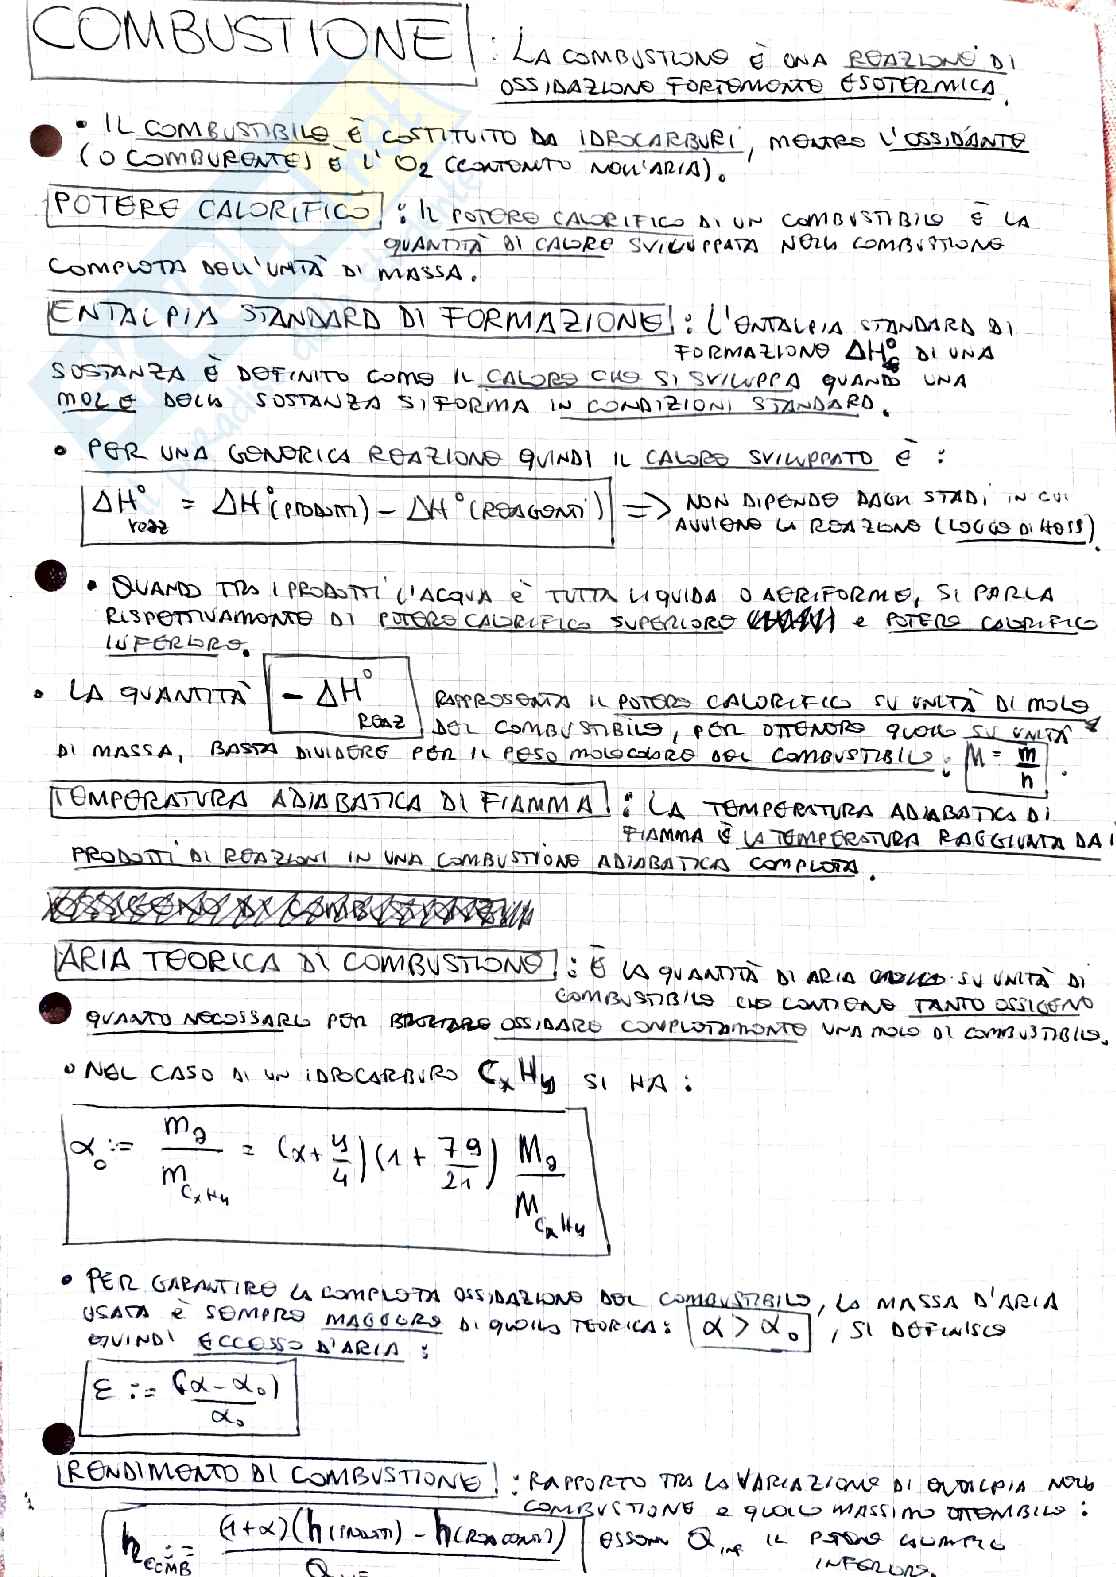 COMBUSTIONE : LA COMBUSTIONE È UNA REAZIONE DI
OSSIDAZIONE FORTEMENTE ESOTERMICA.
• IL COMBUSTIBILE È COSTITUITO DA IDROCARBURI, MENTRE L'OSSIDANTE
(O COMBURENTE) È L' O2 (CONTENUTO NELL'ARIA).
POTERE CALORIFICO : IL POTERE CALORIFICO DI UN COMBUSTIBILE È LA
QUANTITÀ DI CALORE SVILUPPATA NELLA COMBUSTIONE
COMPLETA DELL'UNITÀ DI MASSA.
ENTALPIA STANDARD DI FORMAZIONE : L'ENTALPIA STANDARD DI
FORMAZIONE ΔH°f DI UNA
SOSTANZA È DEFINITO COME IL CALORE CHE SI SVILUPPA QUANDO UNA
MOLE DELLA SOSTANZA SI FORMA IN CONDIZIONI STANDARD.
• PER UNA GENERICA REAZIONE QUINDI IL CALORE SVILUPPATO È :
ΔH°reaz = ΔH°(PRODOTTI) - ΔH°(REAGENTI) => NON DIPENDE DAGLI STADI IN CUI
AVVIENE LA REAZIONE (LEGGE DI HESS).
• QUANDO TRA I PRODOTTI L'ACQUA È TUTTA LIQUIDA O AERIFORME, SI PARLA
RISPETTIVAMENTE DI POTERE CALORIFICO SUPERIORE E POTERE CALORIFICO
INFERIORE.
• LA QUANTITÀ - ΔH°REAZ RAPPRESENTA IL POTERE CALORIFICO SU UNITÀ DI MOLE
DEL COMBUSTIBILE, PER OTTENERE QUELLO SU UNITÀ
DI MASSA, BASTA DIVIDERE PER IL PESO MOLECOLARE DEL COMBUSTIBILE : M = m/n .
TEMPERATURA ADIABATICA DI FIAMMA : LA TEMPERATURA ADIABATICA DI
FIAMMA È LA TEMPERATURA RAGGIUNTA DAI
PRODOTTI DI REAZIONI IN UNA COMBUSTIONE ADIABATICA COMPLETA.
ARIA TEORICA DI COMBUSTIONE : È LA QUANTITÀ DI ARIA SU UNITÀ DI
COMBUSTIBILE CHE CONTIENE TANTO OSSIGENO
QUANTO NECESSARIO PER OSSIDARE COMPLETAMENTE UNA MOLE DI COMBUSTIBILE.
• NEL CASO DI UN IDROCARBURO CxHy SI HA :
α0 := ma/mCxHy = (x+y/4)(1+79/21) Ma/MCxHy
• PER GARANTIRE LA COMPLETA OSSIDAZIONE DEL COMBUSTIBILE, LA MASSA D'ARIA
USATA È SEMPRE MAGGIORE DI QUELLA TEORICA : α > α0 , SI DEFINISCE
QUINDI ECCESSO D'ARIA :
ε := (α-α0)/α0
RENDIMENTO DI COMBUSTIONE : RAPPORTO TRA LA VARIAZIONE DI ENTALPIA NELLA
COMBUSTIONE E QUELLO MASSIMO OTTENIBILE :
ηCOMB := (1+α)(h(PRODOTTI) - h(REAGENTI)) ESSENDO Qinf IL POTERE CALORIFICO
INFERIORE.